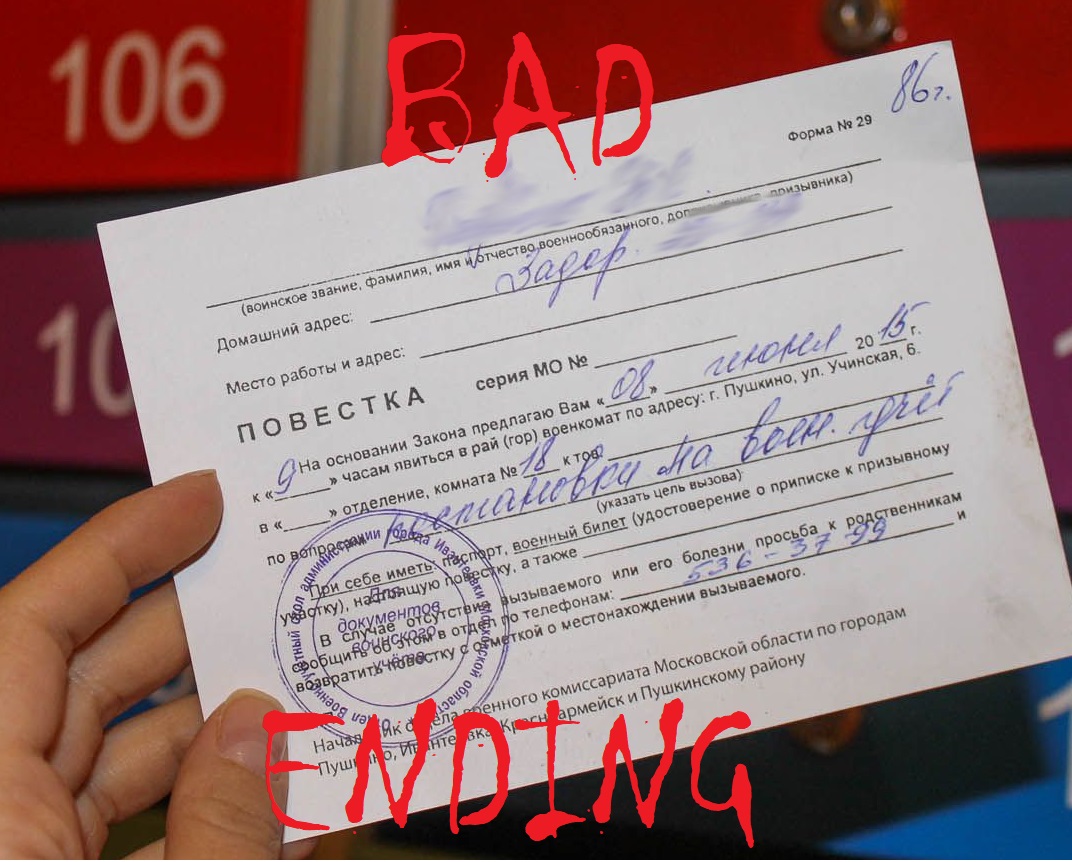 106
BAD
86г.
Форма № 29
(воинское звание, фамилия, имя и отчество военнообязанного, призывника)
Домашний адрес: Задор.
Место работы и адрес:
ПОВЕСТКА серия МО №
На основании Закона предлагаю Вам «08» июня 2015 г.
к «9» часам явиться в рай (гор) военкомат по адресу: г. Пушкино, ул. Учинская, 6.
в «____» отделение, комната № 18 к тов
по вопросам постановки на воен. учёт
(указать цель вызова)
При себе иметь: паспорт, военный билет (удостоверение о приписке к призывному
участку), настоящую повестку, а также
В случае отсутствия вызываемого или его болезни просьба к родственникам
сообщить об этом в отдел по телефонам: 536-37-99 и
возвратить повестку с отметкой о местонахождении вызываемого.
Начальник отдела военного комиссариата Московской области по городам
Пушкино, Ивантеевка, Красноармейск и Пушкинскому району
Военно-учетный стол администрации города Ивантеевки Московской области
Для
документов
воинского
учёта
10
ENDING